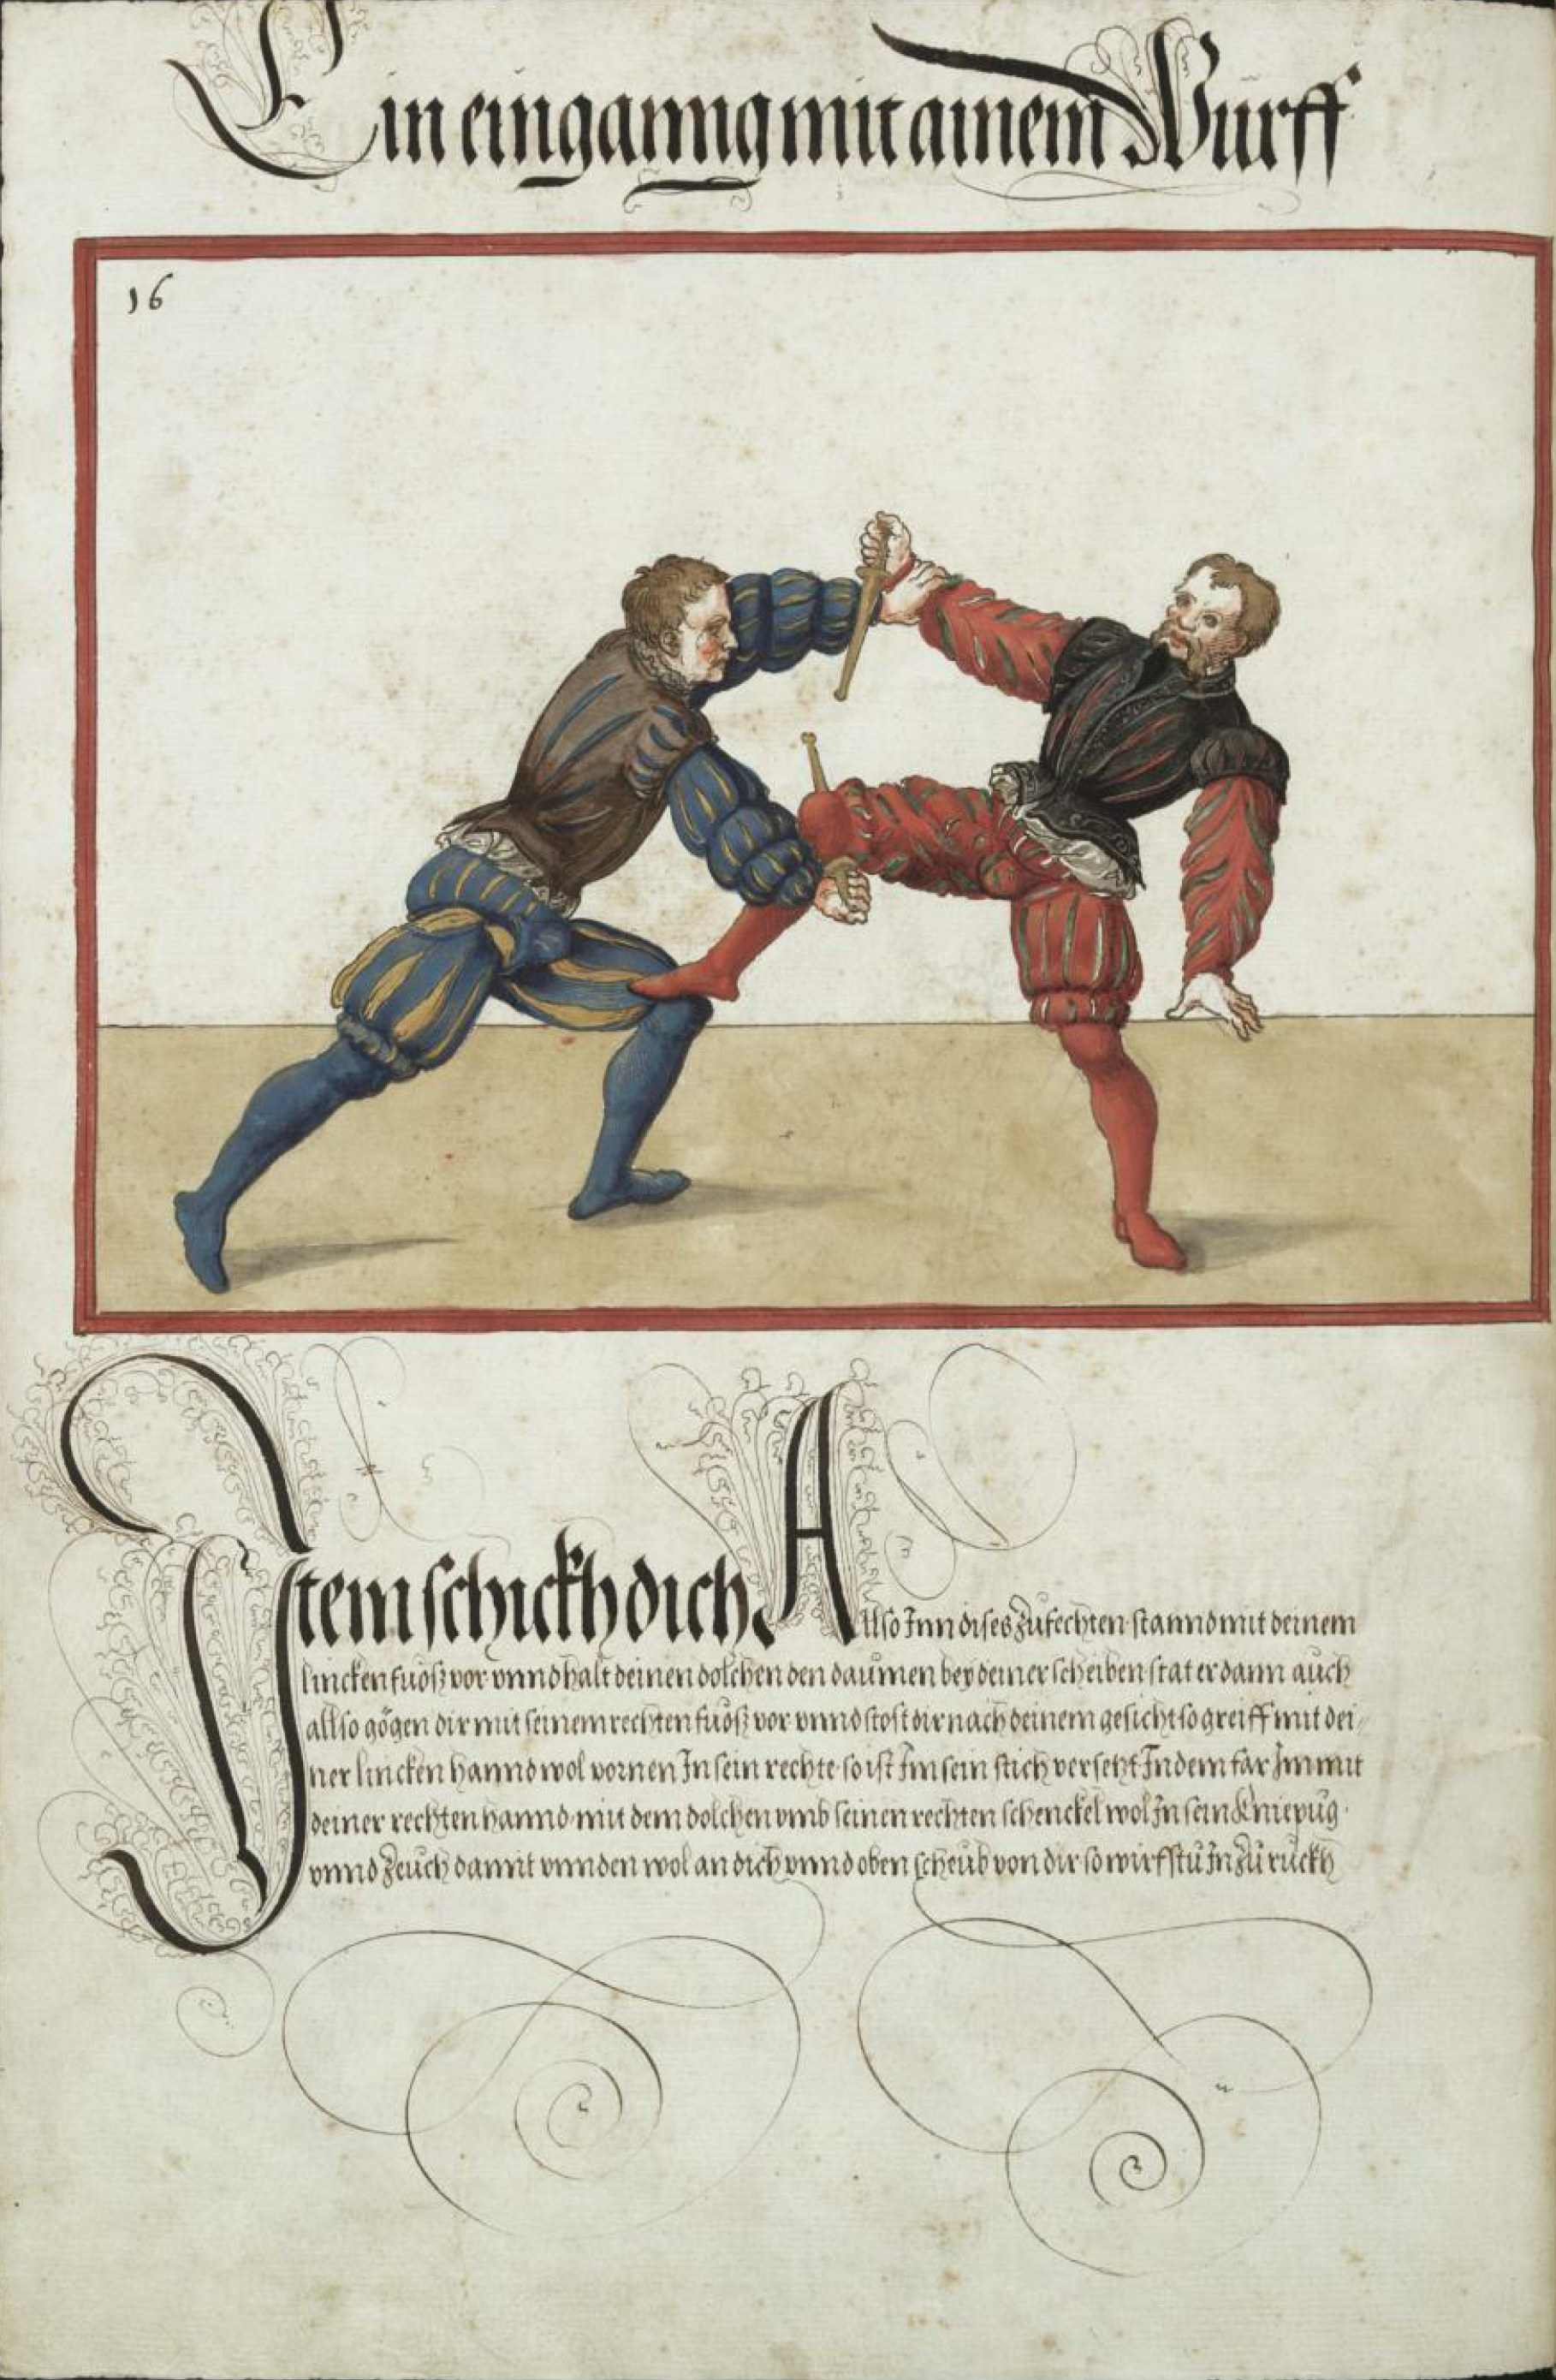 Ein einganng mit ainem Wurff
16
Item schickh dich Allso Inn dises zufechten stannd mit deinem
lincken fuosz vor vnnd halt deinen dolchen den daumen bey deiner scheiben stat er dann auch
allso gögen dir mit seinem rechten fuosz vor vnnd stost dir nach deinem gesicht so greiff mit dei-
ner lincken hannd wol vornen In sein rechte so ist Im sein stich versetzt Indem far Im mit
deiner rechten hannd mit dem dolchen vmb seinen rechten schenckel wol In sein kniepüg
vnnd zeuch damit vnnden wol an dich vnnd oben scheub von dir so wirfstu In zu ruckh